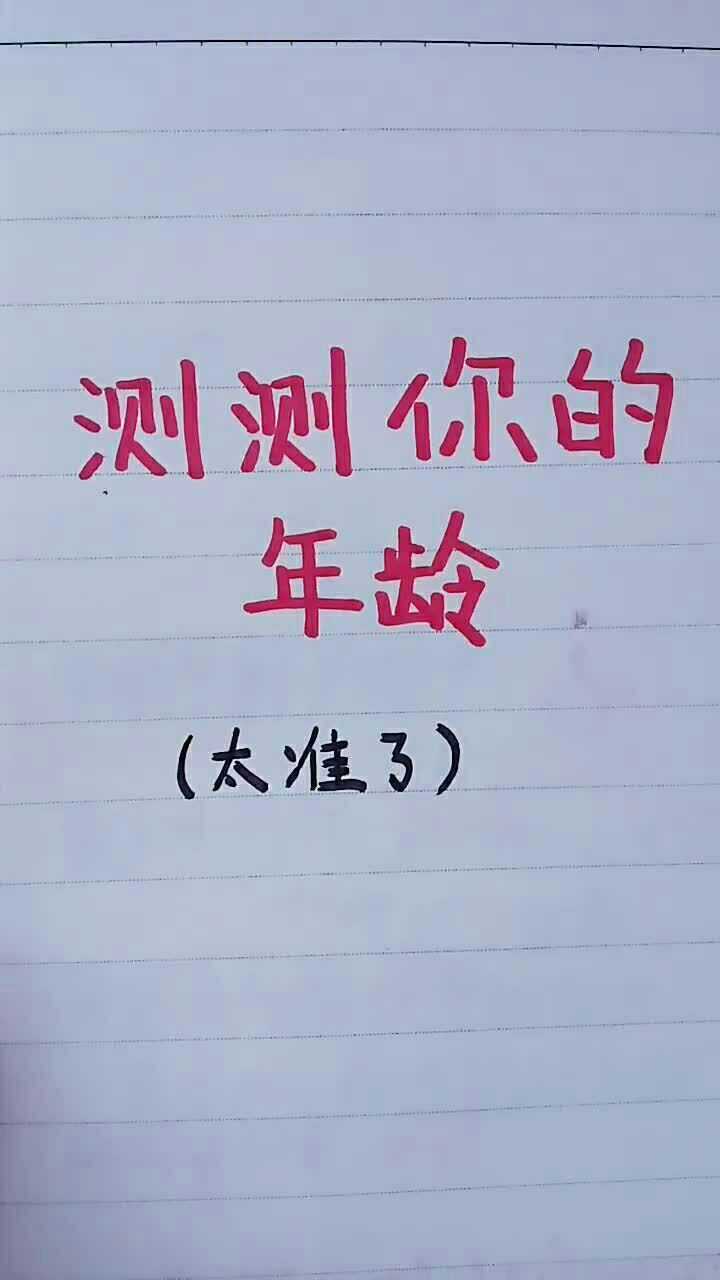 测测你的
年龄
(太准了)